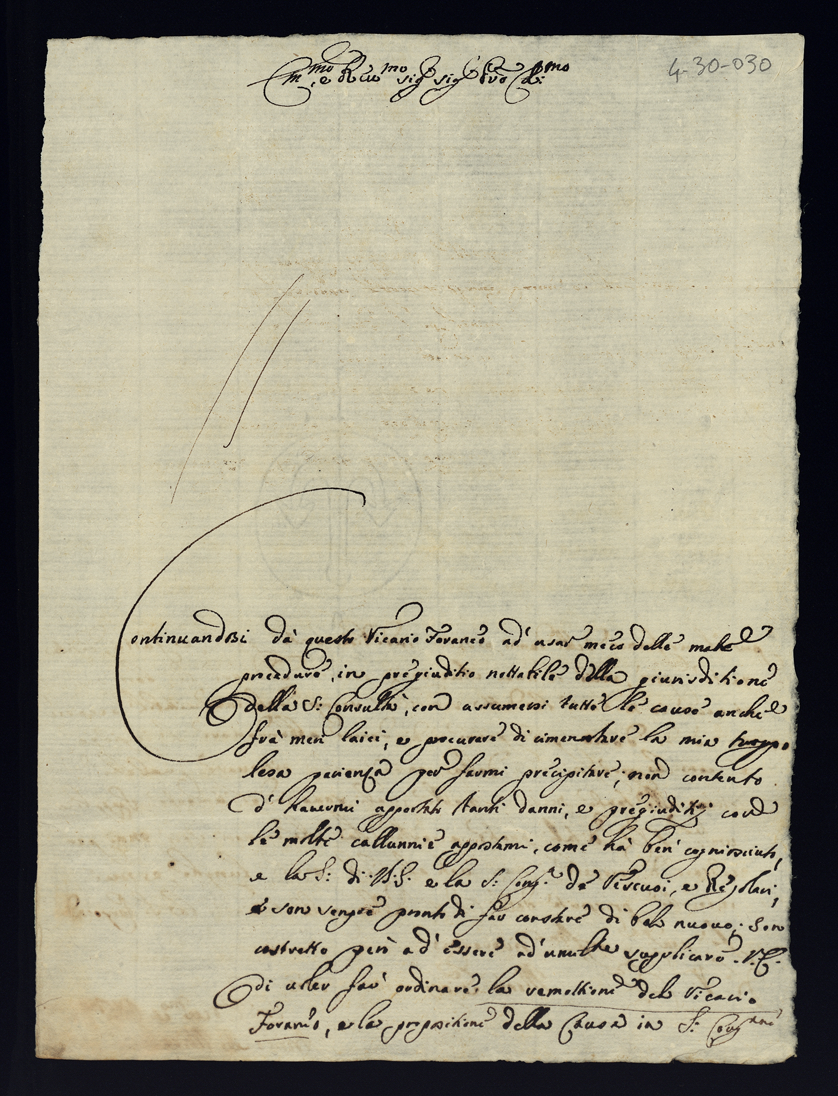 Em.mo e Rev.mo sig.r sig.r Pro.ne Col.mo
4-30-030
Continuandosi dà questo Vicario Foraneo ad' usar meco delle male
procedure, in pregiuditio nottabile della giurisditione
della S: Consulta, con assumersi tutte le cause anche
frà meri laici, e procurare di cimentare la mia troppo
lesa pacienza per farmi precipitare; non contento
d' havermi apportati tanti danni, e pregiuditij con
le molte callunnie appostemi, come hà ben' cogniosciuto,
e la S: di N.S. e la S: Cong.e de Vescovi, e Regolari,
e son sempre pronto di far constare di bel nuovo; son
costretto però ad' essere ad' umil.te supplicare V.E.
di voler far ordinare la remottione del Vicario
Foraneo, e la propositione della Causa in S: Cong.ne